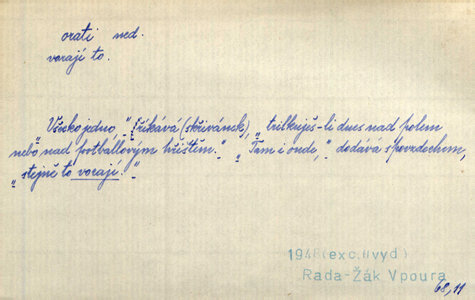 orati ned.
vorají to.
„Všecko jedno,“ říkává (skřivánek), „trilkuješ-li dnes nad polem
nebo nad footballovým hřištěm.“ „Tam i onde,“ dodává s povzdechem,
„stejně to vorají!“
1948 (exc. II vyd)
Rada-Žák Vpoura
68, 11